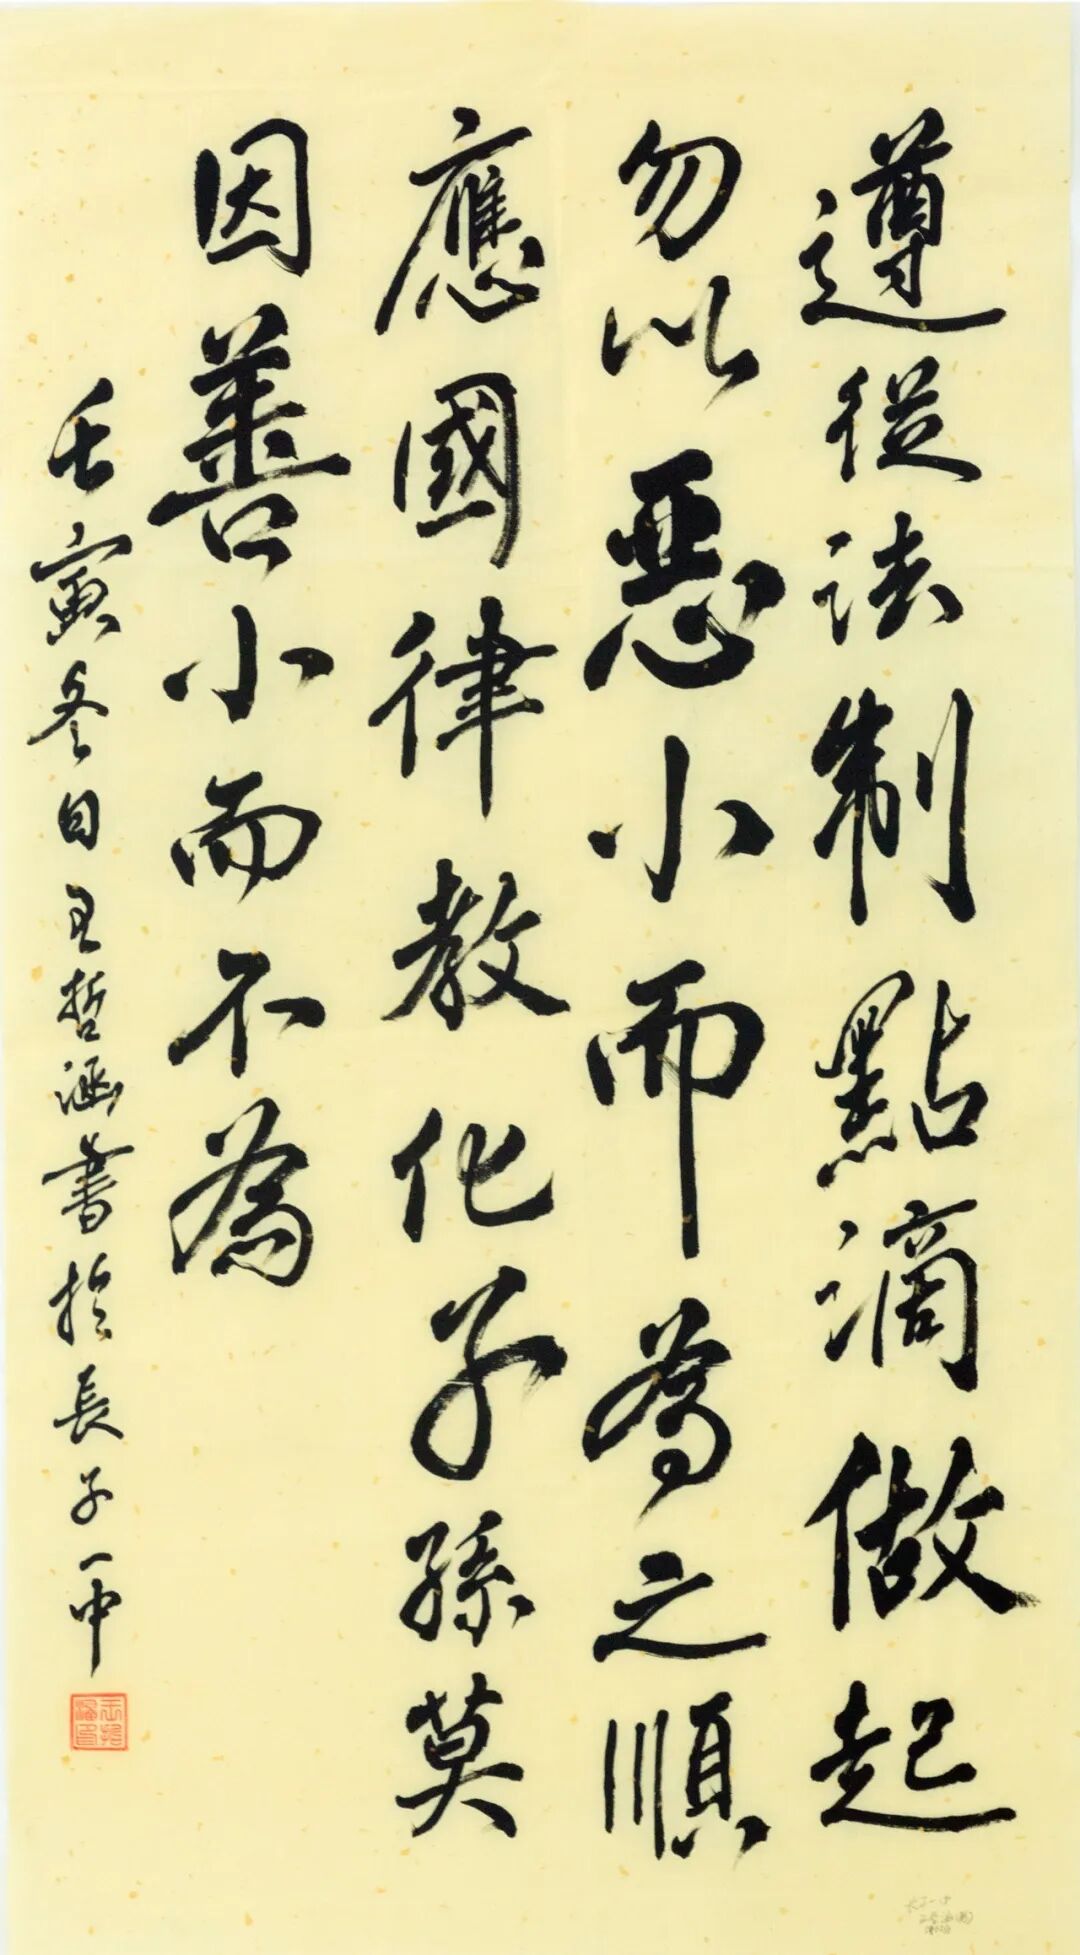 遵從法制點滴做起
勿以惡小而為之順
應國律教化子孫莫
因善小而不為
壬寅冬日王哲涵書於長子一中